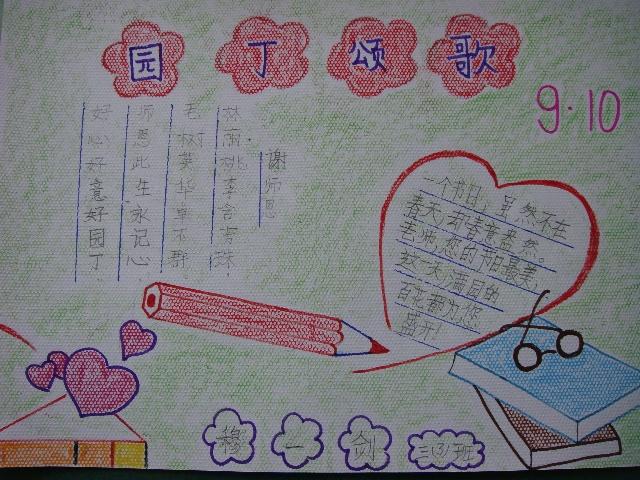 园丁颂歌
9·10
谢师恩
桃李含
毛树英华卓不群
师恩此生永记心
好心好意好园丁
一个节日，虽然不在
春天，却春意盎然。
老师，您的节日最美，
这一天，满园的
百花都为您
盛开！
穆一剑 三(3)班